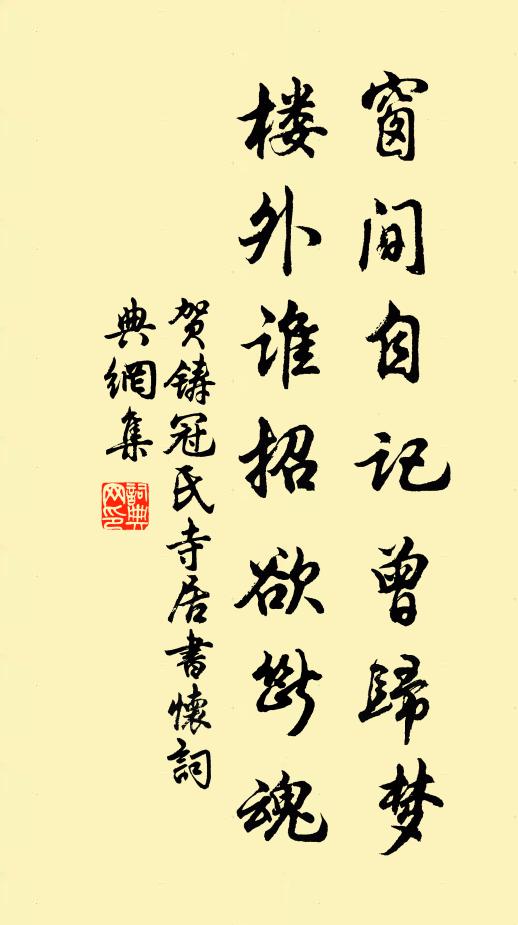 窗间自记曾歸梦
楼外谁招欲断魂
贺铸冠氏寺居書懷詞
典網集
詞典
网印